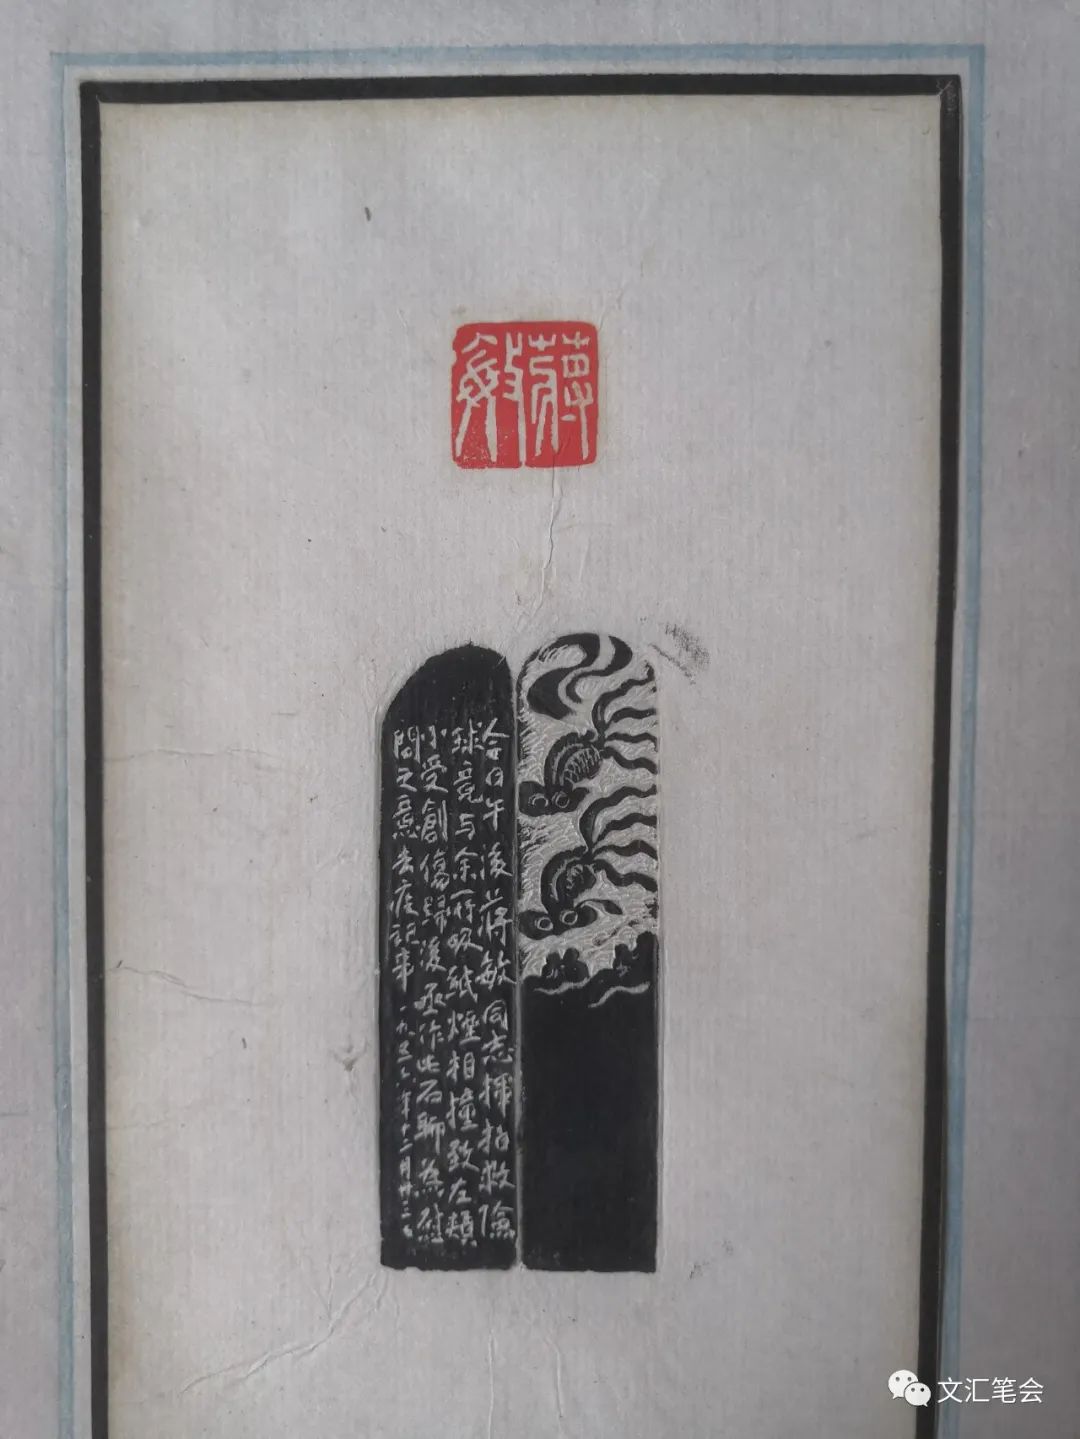 蔣敏
今日午後蔣敏同志揮拍救險
球竟与余所吸紙煙相撞致左頰
小受創傷歸後亟作此石聊為慰
問之意去疾記事一九五六年十二月廿三日
文汇笔会